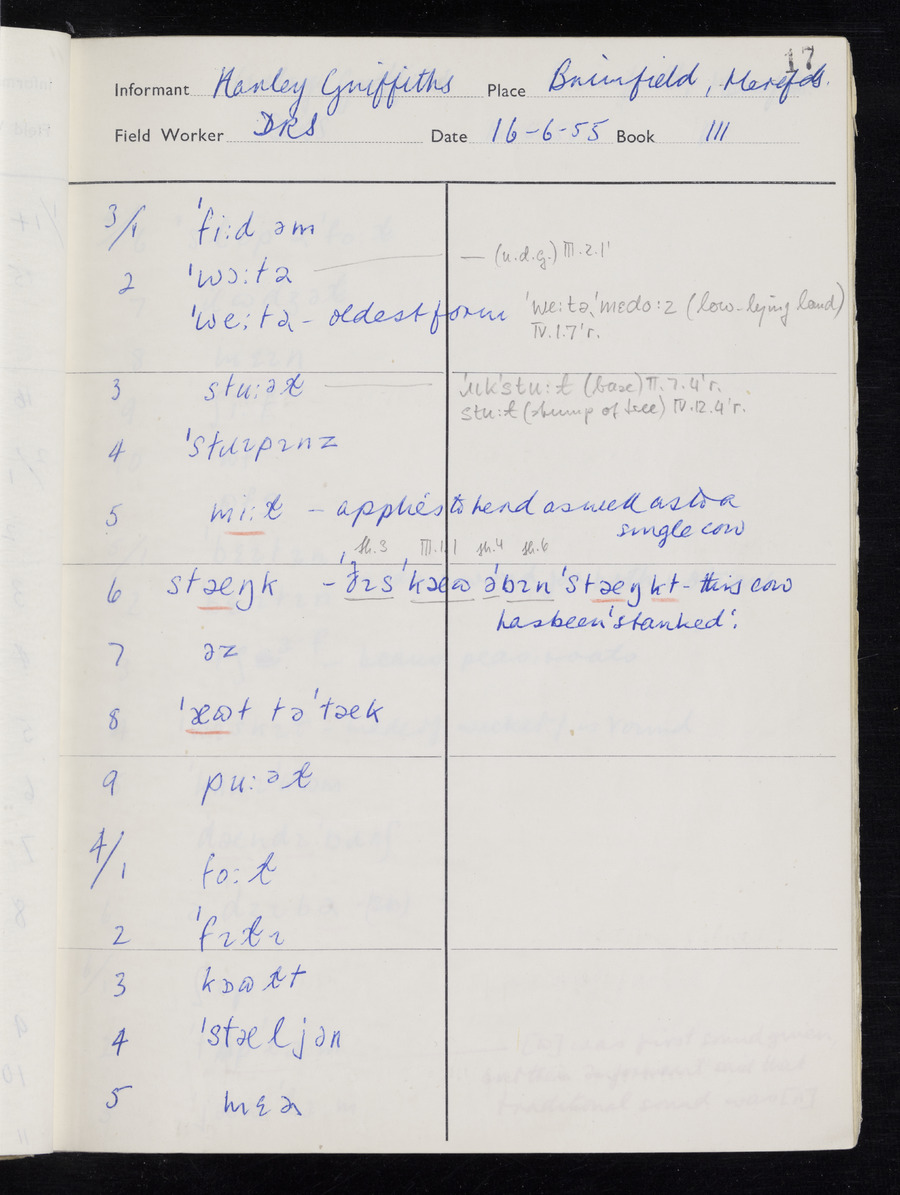 17
Informant Hanley Griffiths Place Brimfield, Herefds.
Field Worker DRS Date 16-6-55 Book III
3/1 ˈfiːd əm
2 ˈwɔːtə — (u.d.g.) III.2.1'
ˈweːtə - oldest form ˈweːtəˈmedoːz (low-lying land)
IV.1.7'r.
3 stuːəɫ ˈɹɪkˈstuːɫ (base) II.7.4'r.
stuːɫ (stump of tree) IV.12.4'r.
4 ˈstɪɹpɪnz
5 mɪːɫ - applies to herd as well as to a
single cow
sh.3 III.1.1 sh.4 sh.6
6 stæŋk - ˈðɪsˈkæʊ əbɪnˈstæŋkt - this cow
has been 'stanked'.
7 əz
8 ˈæʊt təˈtæk
9 puːəɫ
4/1 foːɫ
2 ˈfɪɫɪ
3 kɒʊɫt
4 ˈstæljən
5 mɛə